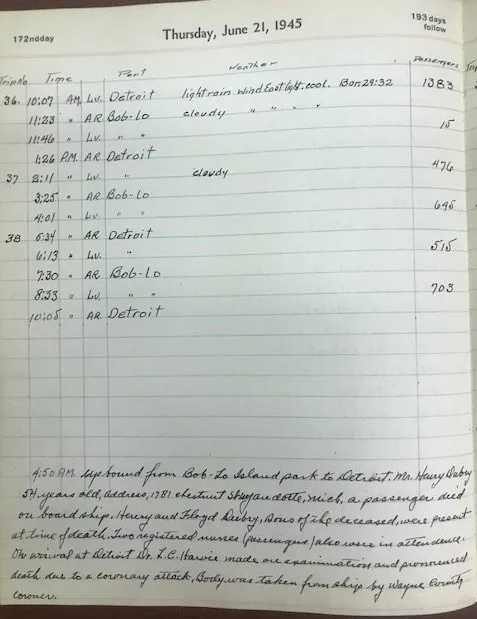 172ndday
Thursday, June 21, 1945
193 days
follow
Trip No Time Port Weather Passengers
36. 10:07 AM. Lv. Detroit light rain Wind East light. cool. Bar 29:32 1383
11:23 " AR Bob-Lo cloudy " " "
11:46 " Lv. " " 15
1:26 P.M. AR Detroit
37 2:11 " Lv. " cloudy 476
3:25 " AR Bob-Lo
4:01 " Lv. " " 645
38 5:34 " AR Detroit
6:13 " Lv. " 515
7:30 " AR Bob-Lo
8:33 " Lv. " " 703
10:05 " AR Detroit
4:50 P.M. Up bound from Bob-Lo Island park to Detroit. Mr. Henry Dubry
54 years old, address, 1781 chestnut St, Wyandotte, Mich, a passenger died
on board ship. Henry and Floyd Dubry, Sons of the deceased, were present
at time of death. Two registered nurses (passengers) also were in attendence.
On arrival at Detroit Dr. L.C. Harvie made an examination and pronounced
death due to a coronary attack, Body was taken from ship by Wayne County
Coroner.